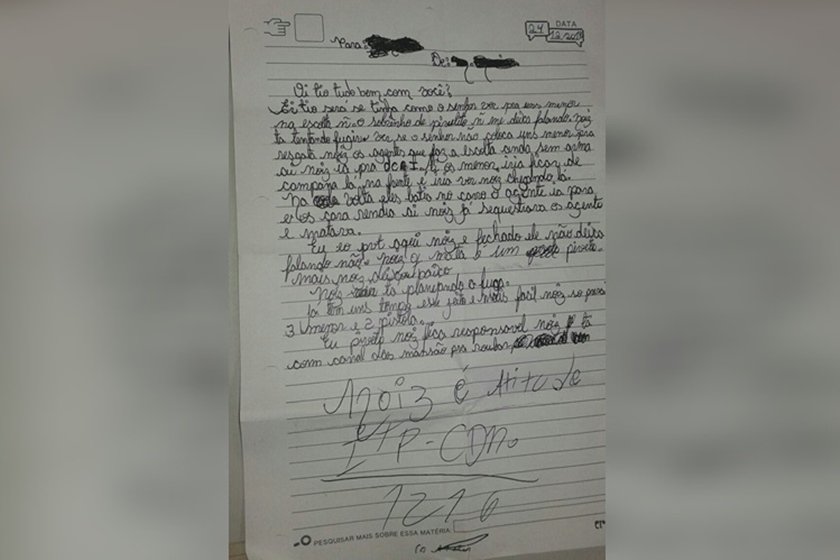 DATA
24
12/20
Para:
De:
Oi tio tudo bem com você?
Ei tio será se tinha como o senhor ver pra uns menor
na escolta ñ. O sobrinho de pivulito ñ me deixa falando. noiz
ta tentando fugir. Ver se o senhor não coloca uns menor pra
resgata noiz os agentes que faz a escolta anda sem arma
ai noiz ia pra DCAI. Ai os menor iria ficar de
campana lá na frente e iria ver noiz chegando lá.
Na volta eles batia no como o agente ia para
e os cara rendia ai noiz já sequestrava os agente
e matava.
Eu e o pvt aqui noiz e fechado ele não deixa
falando não. noiz q mata é um pivete.
mais noiz deixou baixo
Noiz ta planejando a fuga.
Já tem uns tempo esse jeito e mais facil nóiz so precisa
3 menor e 2 pistola.
Eu pivete noiz fica responsavel noiz ta
com canal das mansão pra roubar
Noiz é Atitude
TP-CDN.
1216
PESQUISAR MAIS SOBRE ESSA MATÉRIA: